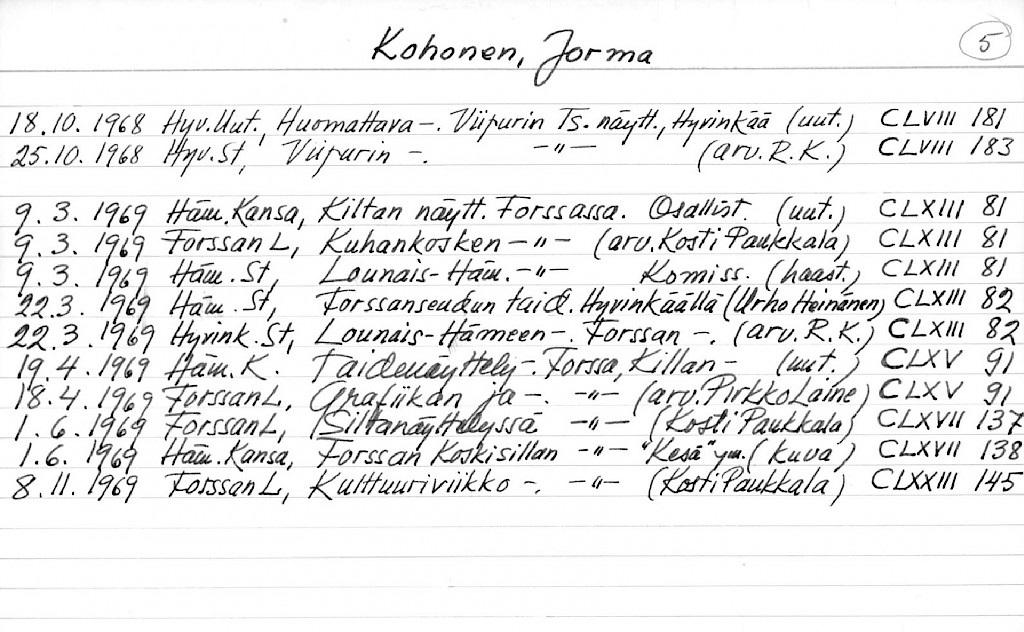 Kohonen, Jorma
5
18.10.1968 Hyv.Uut., Huomattava -. Viipurin Ts. näytt., Hyvinkää (uut.) CLVIII 181
25.10.1968 Hyv.St, Viipurin -. -"- (arv. R.K.) CLVIII 183
9.3.1969 Häm.Kansa, Killan näytt. Forssassa. Osallist. (uut.) CLXIII 81
9.3.1969 Forssan L, Kuhankosken -"- (arv. Kosti Paukkala) CLXIII 81
9.3.1969 Häm.St, Lounais-Häm. -"- Komiss. (haast.) CLXIII 81
22.3.1969 Häm.St, Forssanseudun taid. Hyvinkäällä (Urho Heinänen) CLXIII 82
22.3.1969 Hyvink.St, Lounais-Hämeen -. Forssan -. (arv. R.K.) CLXIII 82
19.4.1969 Häm.K. Taidenäyttely -. Forssa, Killan - (uut.) CLXV 91
18.4.1969 Forssan L, Grafiikan ja -. -"- (arv. Pirkko Laine) CLXV 91
1.6.1969 Forssan L, Siltanäyttelyssä -"- (Kosti Paukkala) CLXVII 137
1.6.1969 Häm.Kansa, Forssan Koskisillan -"- "Kesä" ym. (kuva) CLXVII 138
8.11.1969 Forssan L, Kulttuuriviikko -. -"- (Kosti Paukkala) CLXXIII 145